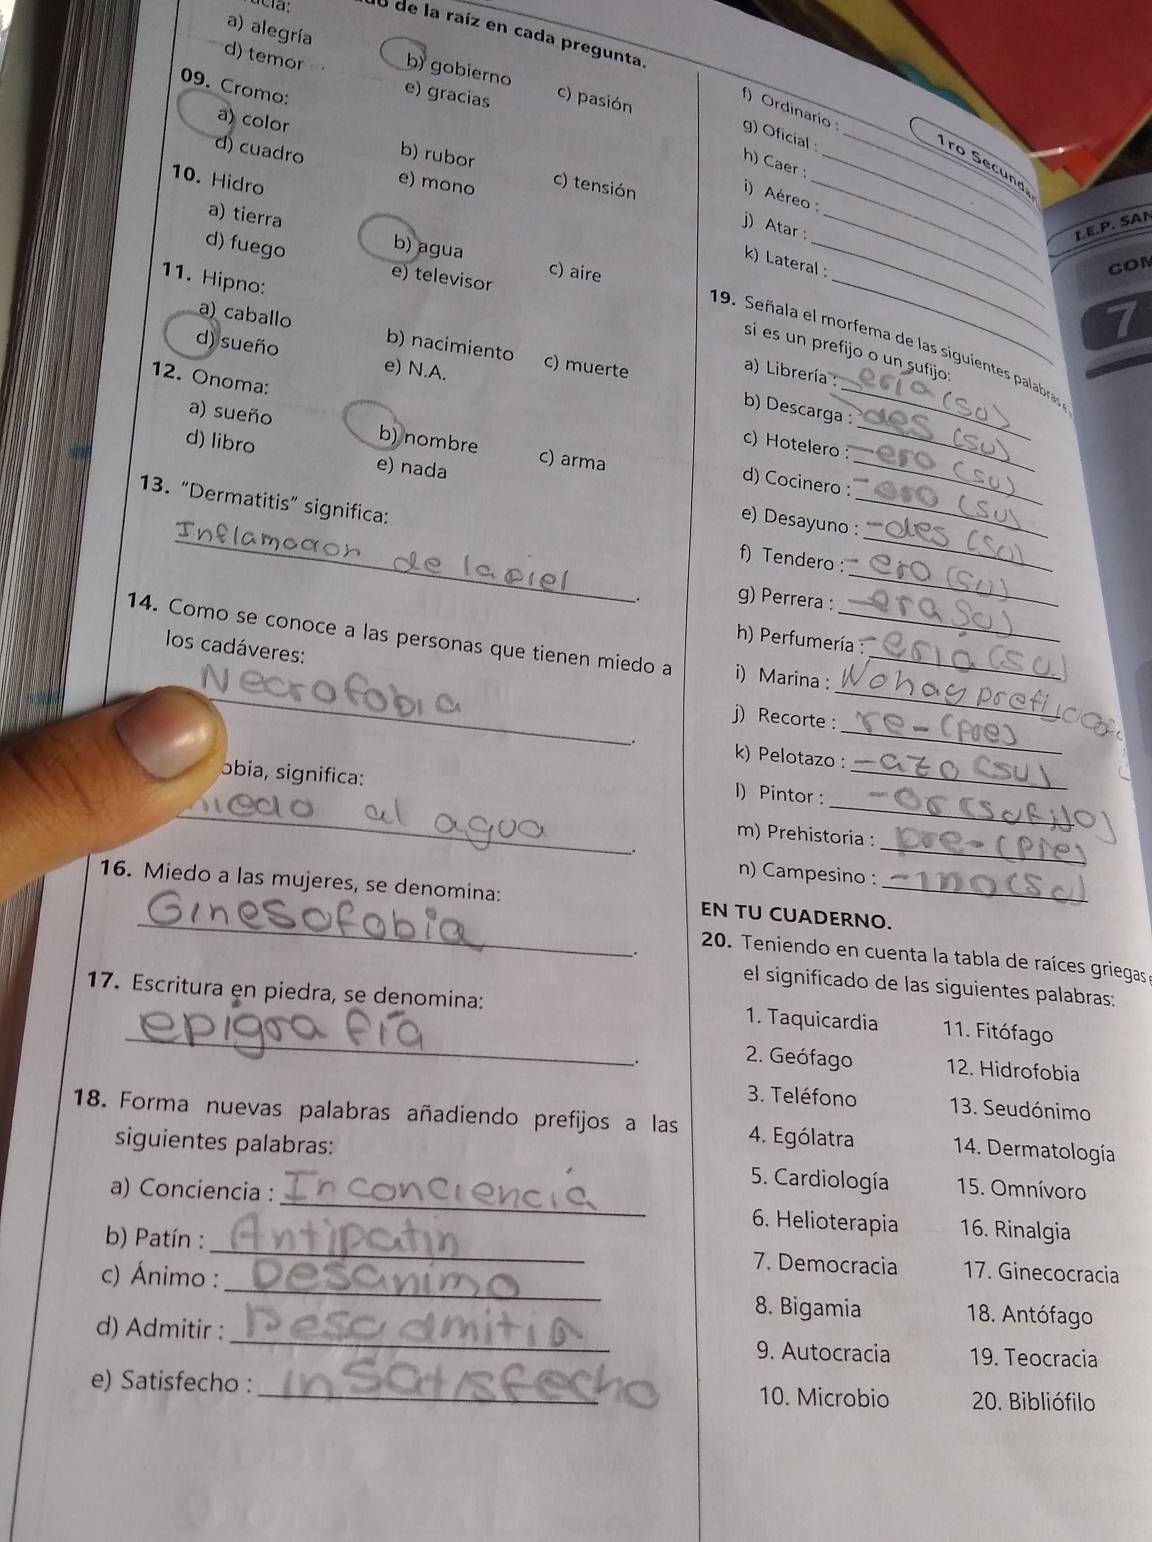 de la raíz en cada pregunta.
a) alegría
b) gobierno
c) pasión
d) temor
e) gracias
09. Cromo:
a) color
b) rubor
c) tensión
d) cuadro
e) mono
10. Hidro
a) tierra
b) agua
c) aire
d) fuego
e) televisor
11. Hipno:
a) caballo
b) nacimiento
c) muerte
d) sueño
e) N.A.
12. Onoma:
a) sueño
b) nombre
c) arma
d) libro
e) nada
13. "Dermatitis" significa:
Inflamacion de la piel
14. Como se conoce a las personas que tienen miedo a
los cadáveres:
Necrofobia
obia, significa:
miedo al agua
16. Miedo a las mujeres, se denomina:
Ginesofobia
17. Escritura en piedra, se denomina:
epigrafía
18. Forma nuevas palabras añadiendo prefijos a las
siguientes palabras:
a) Conciencia : Inconciencia
b) Patín : Antipatin
c) Ánimo : Desanimo
d) Admitir : Desadmitia
e) Satisfecho : insatisfecho
1ro Secundar
I.E.P. SAN
COM
7
f) Ordinario :
g) Oficial :
h) Caer :
i) Aéreo :
j) Atar :
k) Lateral :
19. Señala el morfema de las siguientes palabras e
si es un prefijo o un sufijo:
a) Librería : ería (su)
b) Descarga : des (su)
c) Hotelero : -ero (su)
d) Cocinero : (su)
e) Desayuno : -des (su)
f) Tendero : - ero (su)
g) Perrera : -era su)
h) Perfumería : - ería (su)
i) Marina : No hay prefijo
j) Recorte : re - (pre)
k) Pelotazo : - azo (su)
l) Pintor : - or (sufijo)
m) Prehistoria : pre - (pre)
n) Campesino : - ino (su)
EN TU CUADERNO.
20. Teniendo en cuenta la tabla de raíces griegas
el significado de las siguientes palabras:
1. Taquicardia
2. Geófago
3. Teléfono
4. Ególatra
5. Cardiología
6. Helioterapia
7. Democracia
8. Bigamia
9. Autocracia
10. Microbio
11. Fitófago
12. Hidrofobia
13. Seudónimo
14. Dermatología
15. Omnívoro
16. Rinalgia
17. Ginecocracia
18. Antófago
19. Teocracia
20. Bibliófilo